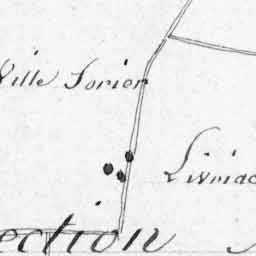 Ville Sorier
Liviniac
ection